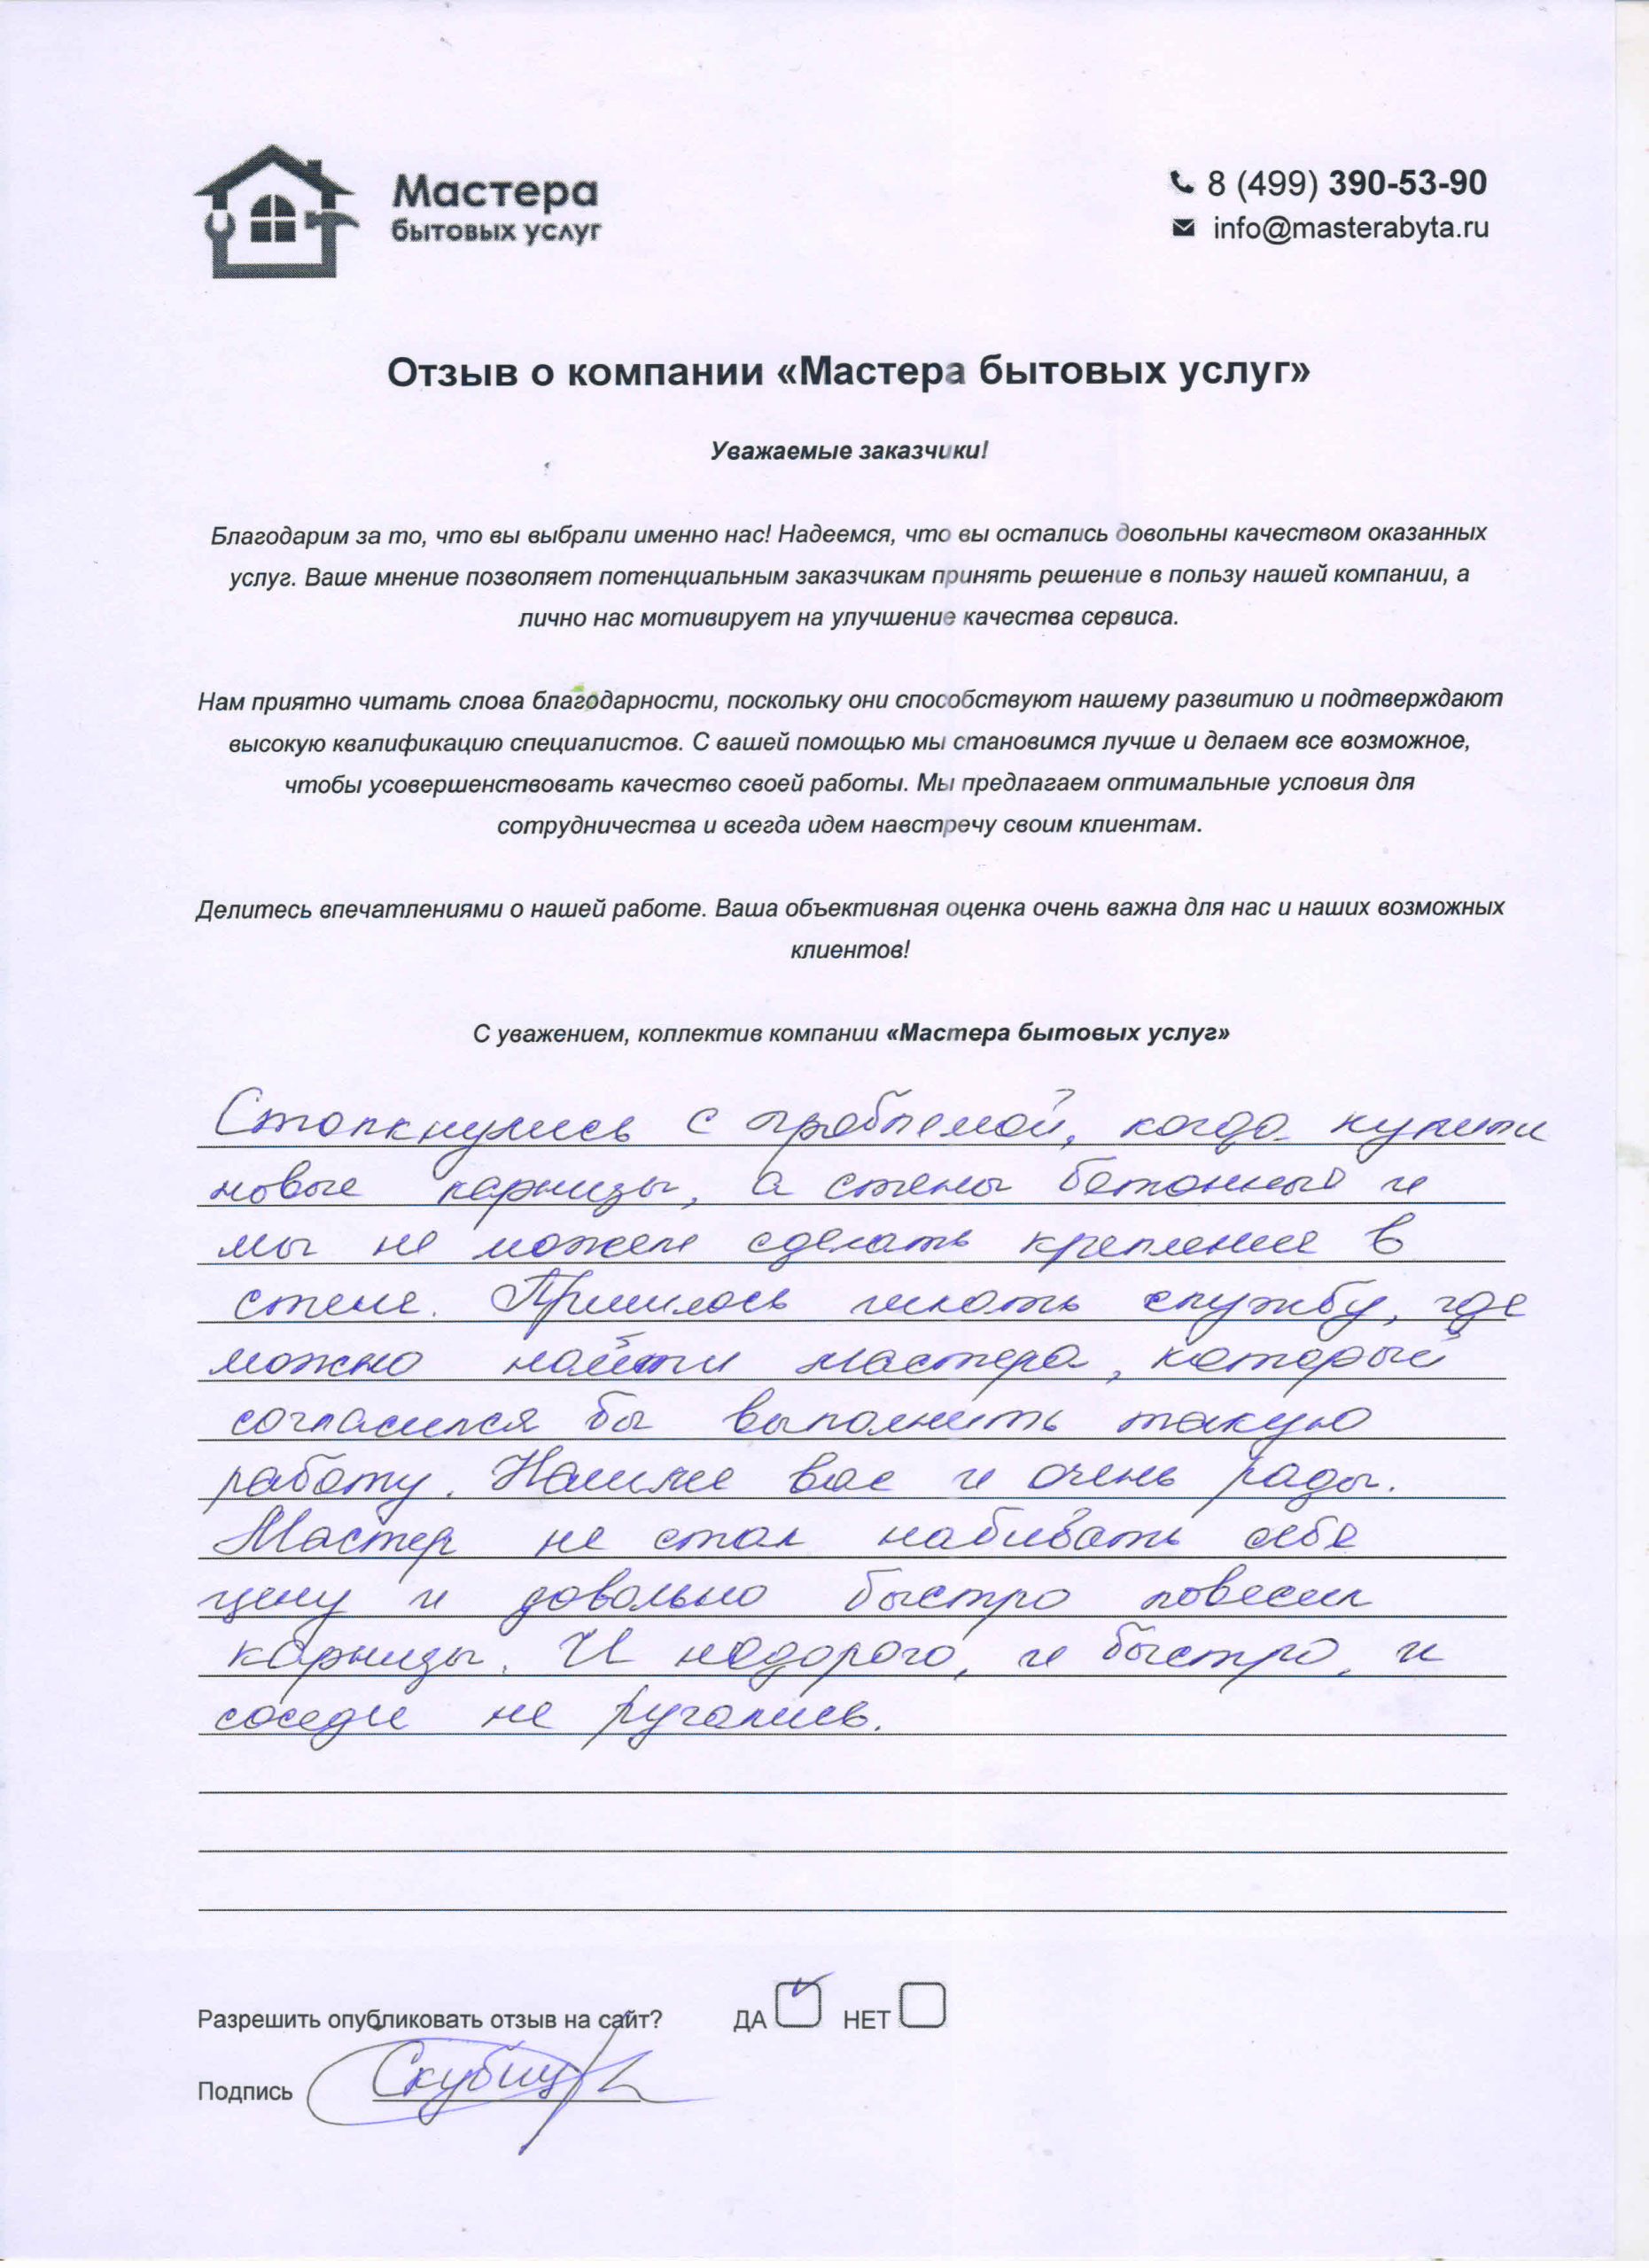 Мастера
бытовых услуг
8 (499) 390-53-90
info@masterabyta.ru
Отзыв о компании «Мастера бытовых услуг»
Уважаемые заказчики!
Благодарим за то, что вы выбрали именно нас! Надеемся, что вы остались довольны качеством оказанных
услуг. Ваше мнение позволяет потенциальным заказчикам принять решение в пользу нашей компании, а
лично нас мотивирует на улучшение качества сервиса.
Нам приятно читать слова благодарности, поскольку они способствуют нашему развитию и подтверждают
высокую квалификацию специалистов. С вашей помощью мы становимся лучше и делаем все возможное,
чтобы усовершенствовать качество своей работы. Мы предлагаем оптимальные условия для
сотрудничества и всегда идем навстречу своим клиентам.
Делитесь впечатлениями о нашей работе. Ваша объективная оценка очень важна для нас и наших возможных
клиентов!
С уважением, коллектив компании «Мастера бытовых услуг»
Столкнулись с проблемой, когда купили
новые карнизы, а стены бетонные и
мы не можем сделать крепление в
стене. Пришлось искать службу, где
можно найти мастера, который
согласился бы выполнить такую
работу. Нашли вас и очень рады.
Мастер не стал набивать себе
цену и довольно быстро повесил
карнизы. И недорого, и быстро, и
соседи не ругались.
Разрешить опубликовать отзыв на сайт? ДА НЕТ
Подпись